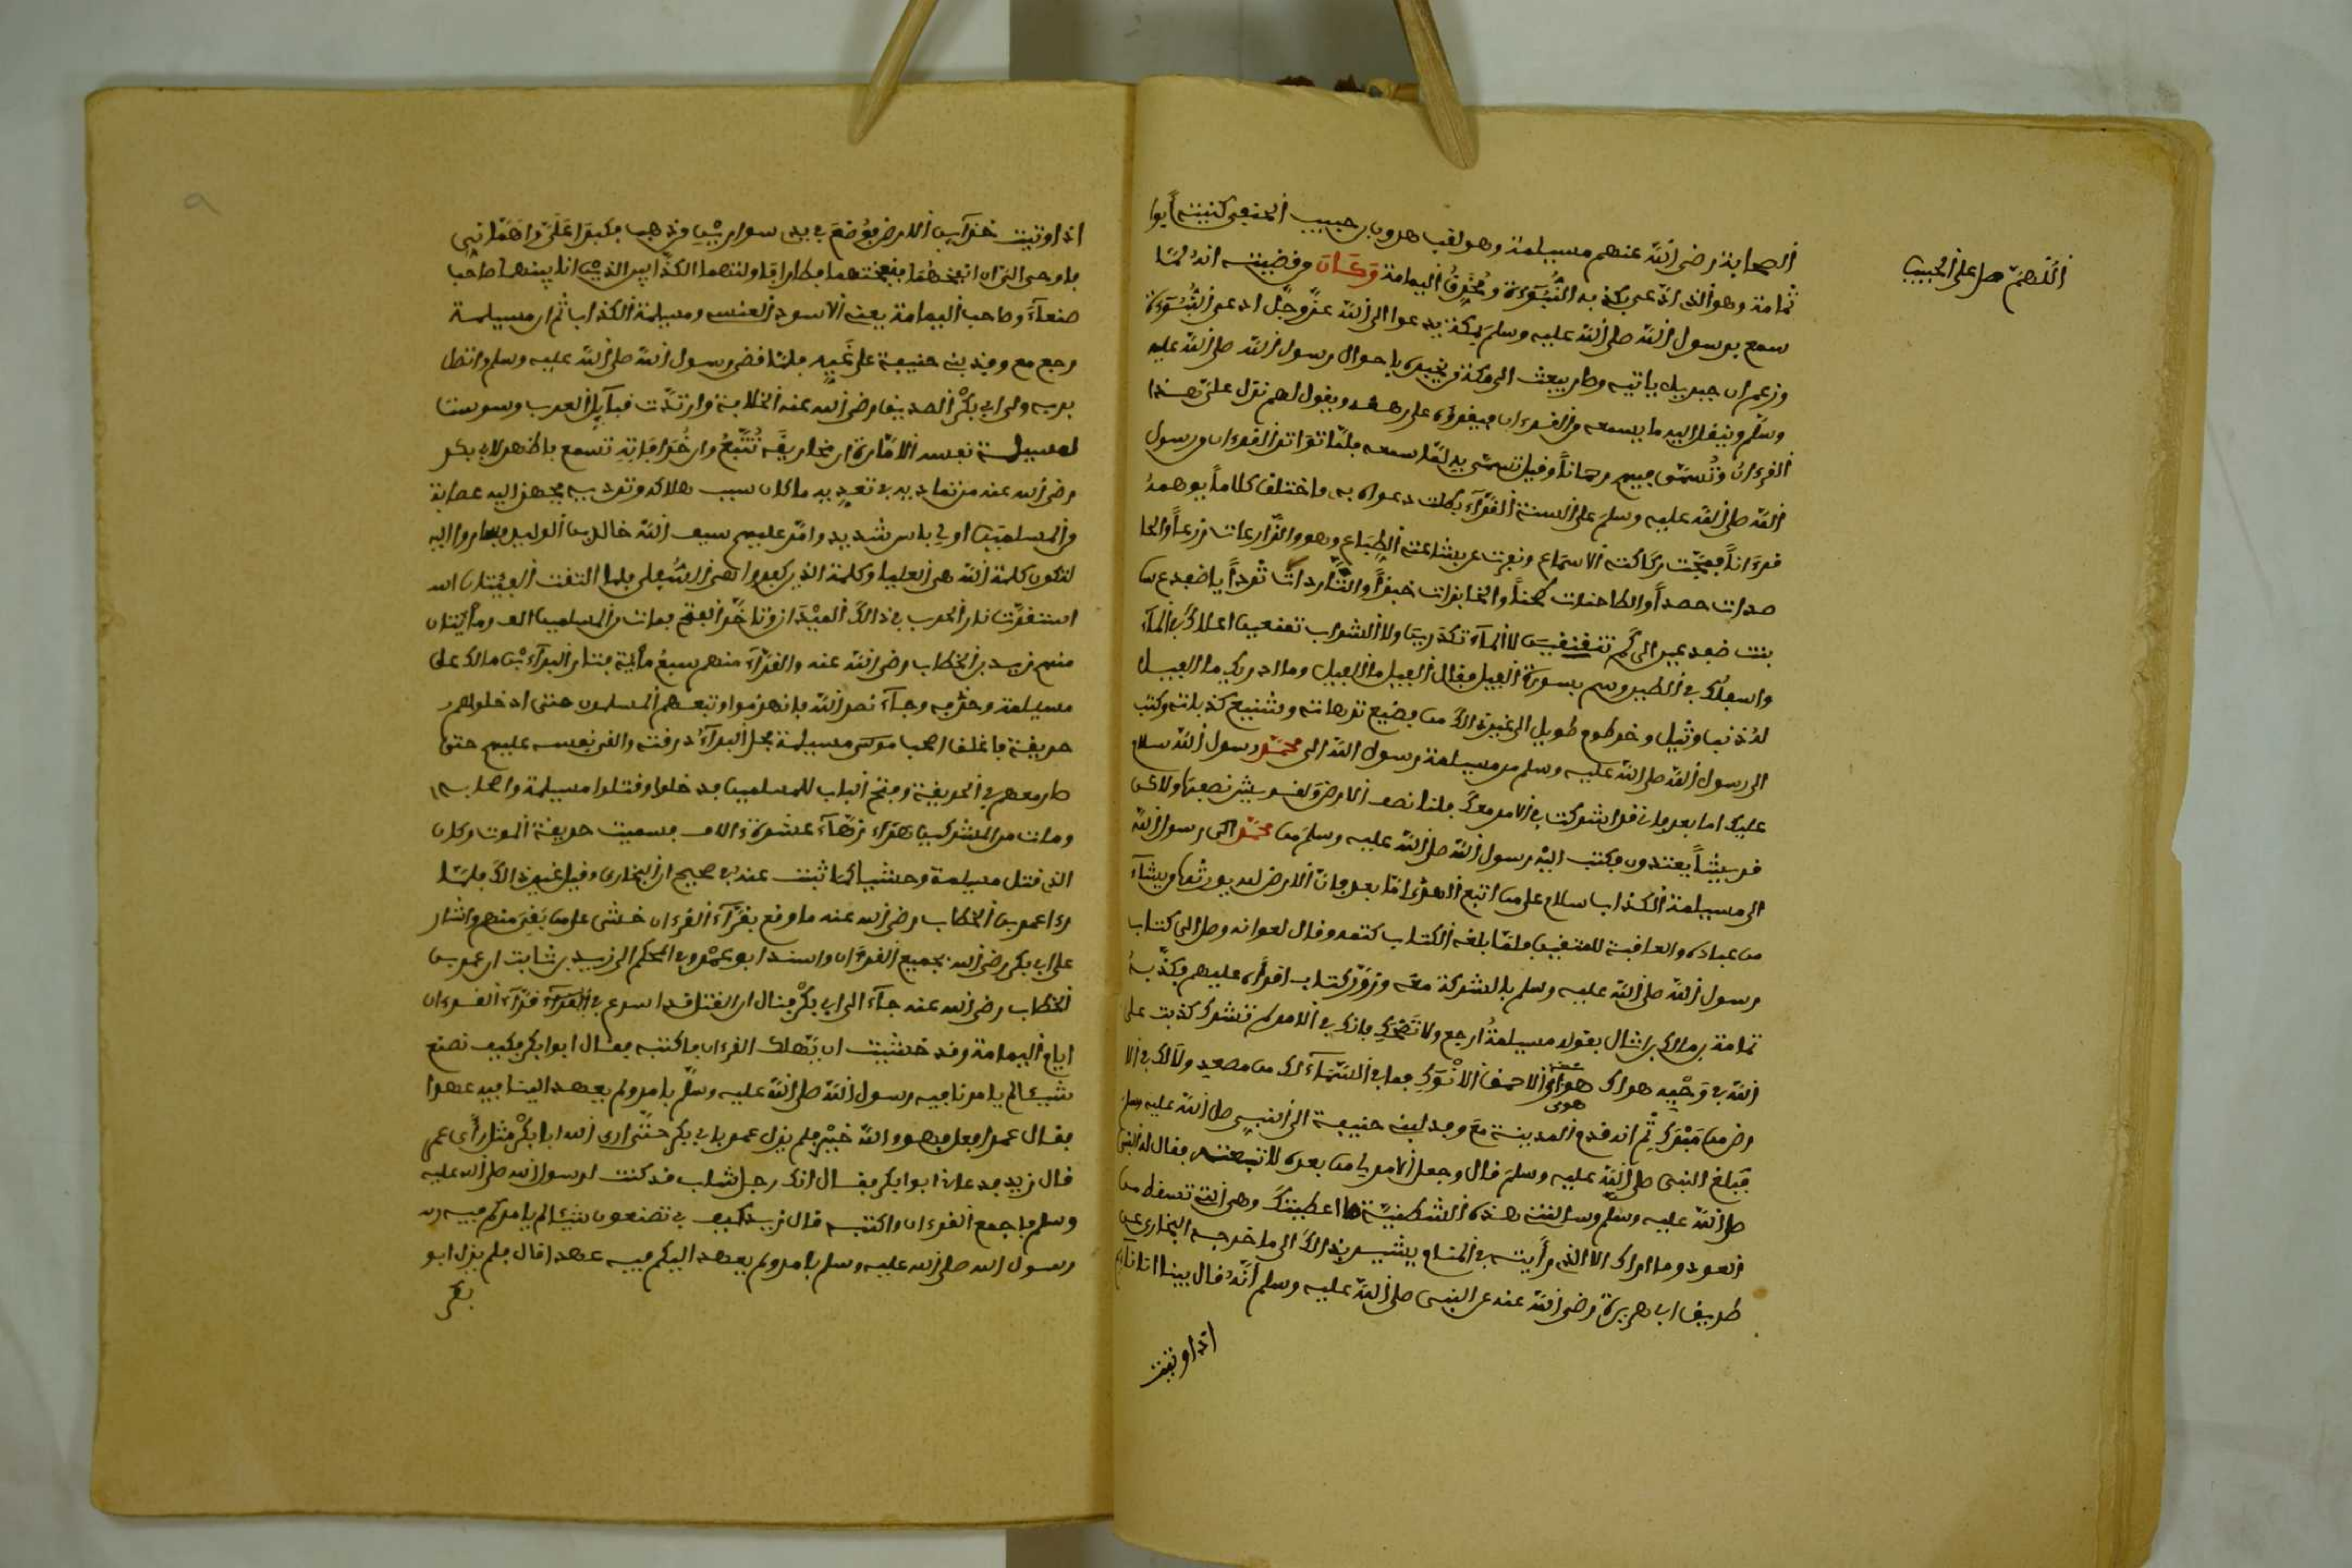 اللهم صل على الحبيب
الصحابة رضي الله عنهم مسيلمة وهو لقب هرون بن حبيب الحنفي كنيته أبوا
ثمامة وهو الذي ادعى بكذبه النبوءة ومخرق اليمامة وكان وقضيته انه لما
سمع برسول الله صلى الله عليه وسلم بمكة يدعوا الى الله عز وجل ادعى النبوءة
وزعم ان جبريل ياتيه وصار يبعث الى مكة من يخبره باحوال رسول الله صلى الله عليه
وسلم وينقل اليه ما يسمعه من القرءان فيقرؤه على رهطه ويقول لهم نزل علي هذا
القرءان وتسمى فيهم رحمانا وقيل تسمى به لما سمعه فلما تواتر القرءان من رسول
الله صلى الله عليه وسلم على السنة القراء بطلت دعواه به واختلق كلاما يوهمه
قرءانا فمجت ركاكته الاسماع ونفرت عن بشاعته الطباع وهو والزارعات زرعا والحا
صدات حصدا والطاحنات طحنا والخابزات خبزا والثاردات ثردا يا ضفدع بن
بنت ضفدعين الى كم تنقنقين لا الماء تكدرين ولا الشراب تمنعين اعلاك في الماء
واسفلك في الطين وسم بسورة الفيل فقال الفيل ما الفيل وما ادريك ما الفيل
له ذنب وثيل وخرطوم طويل الى غير ذالك من فضيع ترهاته وشنيع كذباته وكتب
الى رسول الله صلى الله عليه وسلم من مسيلمة رسول الله الى محمد رسول الله سلام
عليك اما بعد فان قد اشركت في الامر معك فلنا نصف الارض ولقريش نصفها ولاكن
قريشا يعتدون فكتب اليه رسول الله صلى الله عليه وسلم من محمد الى رسول الله
الى مسيلمة الكذاب سلام على من اتبع الهدى اما بعد فان الارض لله يورثها من يشاء
من عباده والعاقبة للمتقين فلما بلغه الكتاب كتمه وقال لعوانه وصل الى كتاب
رسول الله صلى الله عليه وسلم بالشركة معه وزور كتاب اقراه عليهم فكذبه
ثمامة بن مالك بن اثال بقوله مسيلمة ارجع ولا تمحك فانك في الامر لم تشرك كذبت على
الله في وحيه هواك هوى الاحمق الانوك فما في السماء لك من مصعد ولا لك في الا
رض من مبرك ثم انه قدم المدينة مع وفد لبني حنيفة الى النبي صلى الله عليه وسلم
فبلغ النبي صلى الله عليه وسلم قال وجعل الامر لي من بعده لاتبعته فقال له النبي
صلى الله عليه وسلم وسالته هذه الشطنية ما اعطيتك وهي التي تسقط من
العود وما اراك الا الذي رأيته في المنام يشير بذالك الى ما خرجه البخاري عن
طريق ابي هريرة رضي الله عنه عن النبي صلى الله عليه وسلم انه قال بينا انا نايم
اذ اوتيت
اذ اوتيت خزاين الارض فوضع في يدي سوارين من ذهب فكبرا علي واهماني
فاوحي الي ان انفخهما فنفختهما فطارا فاولتهما الكذابين الذين انا بينهما صاحب
صنعاء وصاحب اليمامة يعني الاسود العنسي ومسيلمة الكذاب ثم ان مسيلمة
رجع مع وفد بني حنيفة على غيه فلما قضي رسول الله صلى الله عليه وسلم وانتقل
بربه ولي ابي بكر الصديق رضي الله عنه الخلافة وارتدت قبايل العرب وسوست
لمسيلمة نفسه الامارة ان مخاريقه تتبع وان خرافاته تسمع فاظهر لابي بكر
رضي الله عنه من تماديه في تعديه ما كان سبب هلاكه وترديه فجهز اليه عصابة
من المسلمين اولي باس شديد وامر عليهم سيف الله خالد بن الوليد فساروا اليه
لتكون كلمة الله هي العليا وكلمة الذين كفروا هي السفلى فلما التقت الفئتان
استعرت نار الحرب في ذالك الميدان وتاخر الفتح فمات من المسلمين الف ومايتان
منهم زيد بن الخطاب رضي الله عنه والقراء منهم سبع مائة فثار البراء بن مالك على
مسيلمة وحزبه وجاء نصر الله فانهزموا وتبعهم المسلمون حتى ادخلوهم
حديقة فاغلق اصحاب مسيلمة فحمل البراء درقته والقى نفسه عليهم حتى
صار معهم في الحديقة وفتح الباب للمسلمين فدخلوا وقتلوا مسيلمة واصحابه
ومات من المشركين زهاء عشرة ءالاف فسميت حديقة الموت وكان
الذي قتل مسيلمة وحشيا كما ثبت عنه في صحيح البخاري وقيل غير ذالك فلما
رءا عمر بن الخطاب رضي الله عنه ما وقع بقراء القرءان خشي على من بقي منهم واشار
على ابي بكر رضي الله بجميع القرءان واسند ابو عمرو في المحكم الى زيد بن ثابت ان عمر بن
الخطاب رضي الله عنه جاء الى ابي بكر فقال ان القتل قد اسرع في قراء القرءان
ايام اليمامة وقد خشيت ان يهلك القرءان فاكتبه فقال ابوا بكر فكيف نصنع
شيئا لم يامرنا فيه رسول الله صلى الله عليه وسلم بامر ولم يعهد الينا فيه عهدا
فقال عمر افعل فهو والله خير فلم يزل عمر بابي بكر حتى اري الله ابا بكر مثل رأي عمر
قال زيد فدعاني ابوا بكر فقال انك رجل شاب قد كنت لرسول الله صلى الله عليه
وسلم فاجمع القرءان واكتبه قال زيد كيف تصنعون شيئا لم يامركم فيه
رسول الله صلى الله عليه وسلم بامر ولم يعهد اليكم فيه عهدا قال فلم يزل ابو
بكر